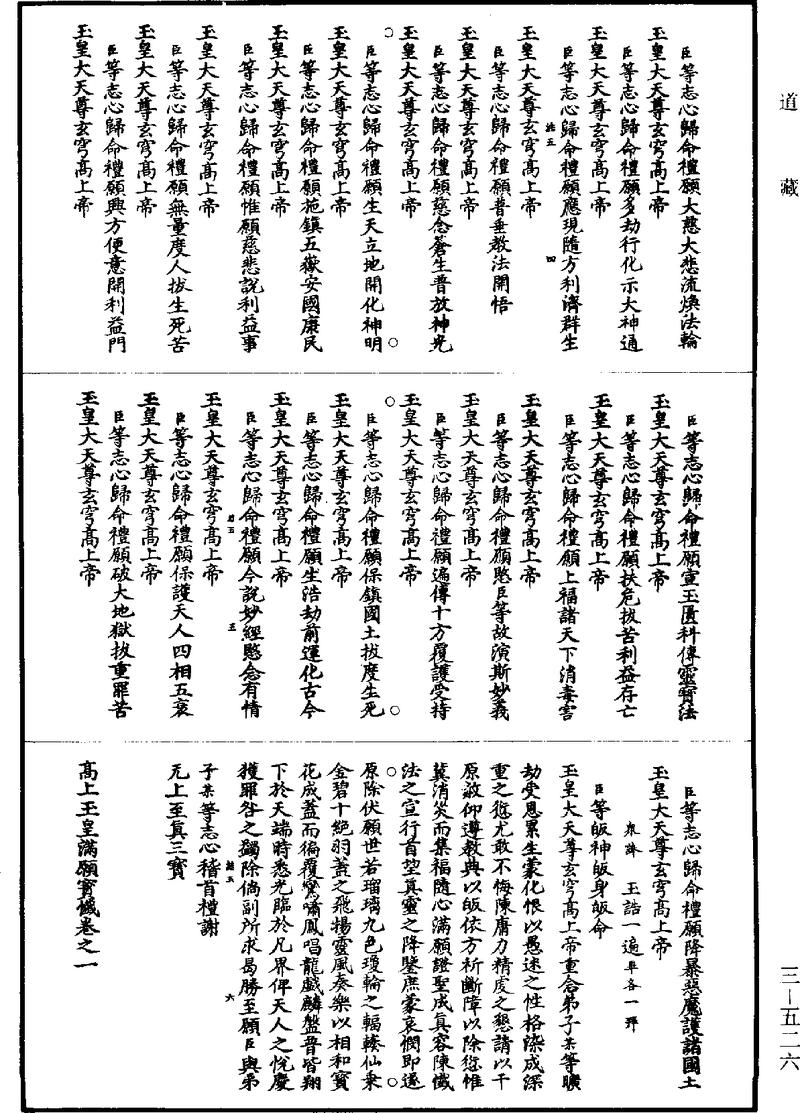 道藏
臣等志心歸命禮願大慈大悲流煥法輪
玉皇大天尊玄穹高上帝
臣等志心歸命禮願多劫行化示大神通
玉皇大天尊玄穹高上帝
臣等志心歸命禮願應現隨方利濟群生
玉皇大天尊玄穹高上帝
臣等志心歸命禮願普垂教法開悟
玉皇大天尊玄穹高上帝
臣等志心歸命禮願慈念蒼生普放神光
玉皇大天尊玄穹高上帝
臣等志心歸命禮願生天立地開化神明
玉皇大天尊玄穹高上帝
臣等志心歸命禮願施鎮五嶽安國康民
玉皇大天尊玄穹高上帝
臣等志心歸命禮願惟願慈悲說利益事
玉皇大天尊玄穹高上帝
臣等志心歸命禮願無量度人拔生死苦
玉皇大天尊玄穹高上帝
臣等志心歸命禮願興方便意開利益門
玉皇大天尊玄穹高上帝
臣等志心歸命禮願宣玉匱科傳靈寶法
玉皇大天尊玄穹高上帝
臣等志心歸命禮願扶危拔苦利益存亡
玉皇大天尊玄穹高上帝
臣等志心歸命禮願上福諸天下消毒害
玉皇大天尊玄穹高上帝
臣等志心歸命禮願愍臣等故演斯妙義
玉皇大天尊玄穹高上帝
臣等志心歸命禮願遍傳十方覆護受持
玉皇大天尊玄穹高上帝
臣等志心歸命禮願保鎮國土拔度生死
玉皇大天尊玄穹高上帝
臣等志心歸命禮願生浩劫前運化古今
玉皇大天尊玄穹高上帝
臣等志心歸命禮願今說妙經愍念有情
玉皇大天尊玄穹高上帝
臣等志心歸命禮願保護天人四相五衰
玉皇大天尊玄穹高上帝
臣等志心歸命禮願破大地獄拔重罪苦
玉皇大天尊玄穹高上帝
臣等志心歸命禮願降暴惡魔護諸國土
玉皇大天尊玄穹高上帝
玉誥一遍畢各一拜
臣等皈神皈身皈命
玉皇大天尊玄穹高上帝重念弟子某等曠
劫受恩累生蒙化恨以愚迷之性格染成深
重之愆尤敢不悔陳庸力精虔之懇請以干
原赦仰遵教典以皈依方祈斷障以除愆惟
冀消災而集福隨心滿願證聖成真容陳懺
法之宣行首望真靈之降鑒庶蒙哀憫即遂
原除伏願世若瑠璃九色瓊輪之輻輳仙乘
金碧十絕羽蓋之飛揚靈風奏樂以相和寶
花成蓋而徧覆鸞嘯鳳唱龍戲麟盤普皆翔
下於天端時悉光臨於凡界俾天人之悅慶
獲罪咎之蠲除倘副所求曷勝至願臣與弟
子某等志心稽首禮謝
无上至真三寶
高上玉皇滿願寶懺卷之一
三—五二六